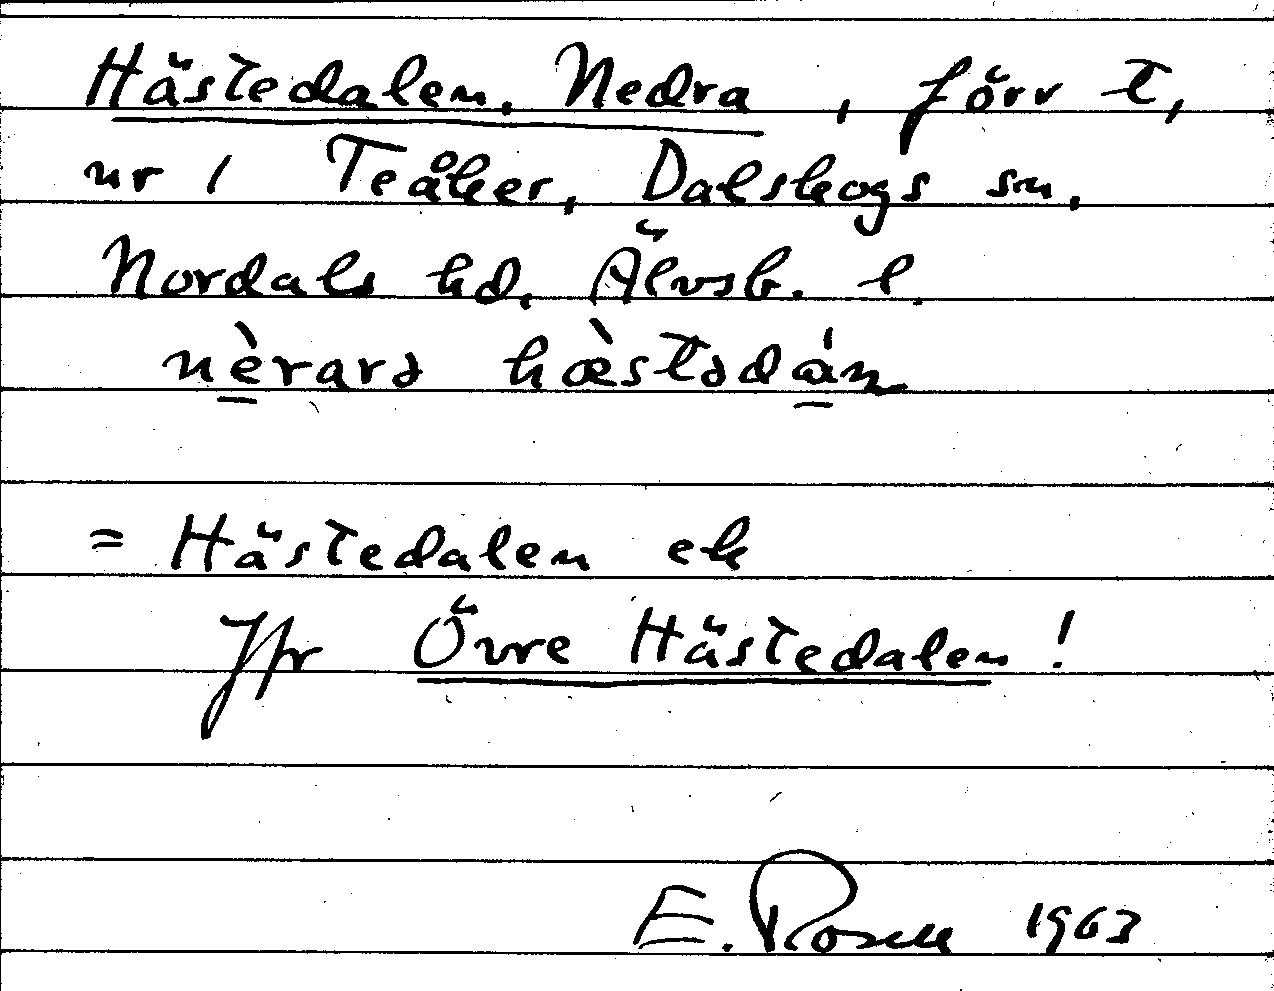 Hästedalen, Nedra, förr t,
nr 1 Teåker, Dalskogs sn,
Nordals hd, Älvsb. l.
nèrarə hæ̀stədán
= Hästedalen ek
Jfr Övre Hästedalen!
E. Rosell 1963